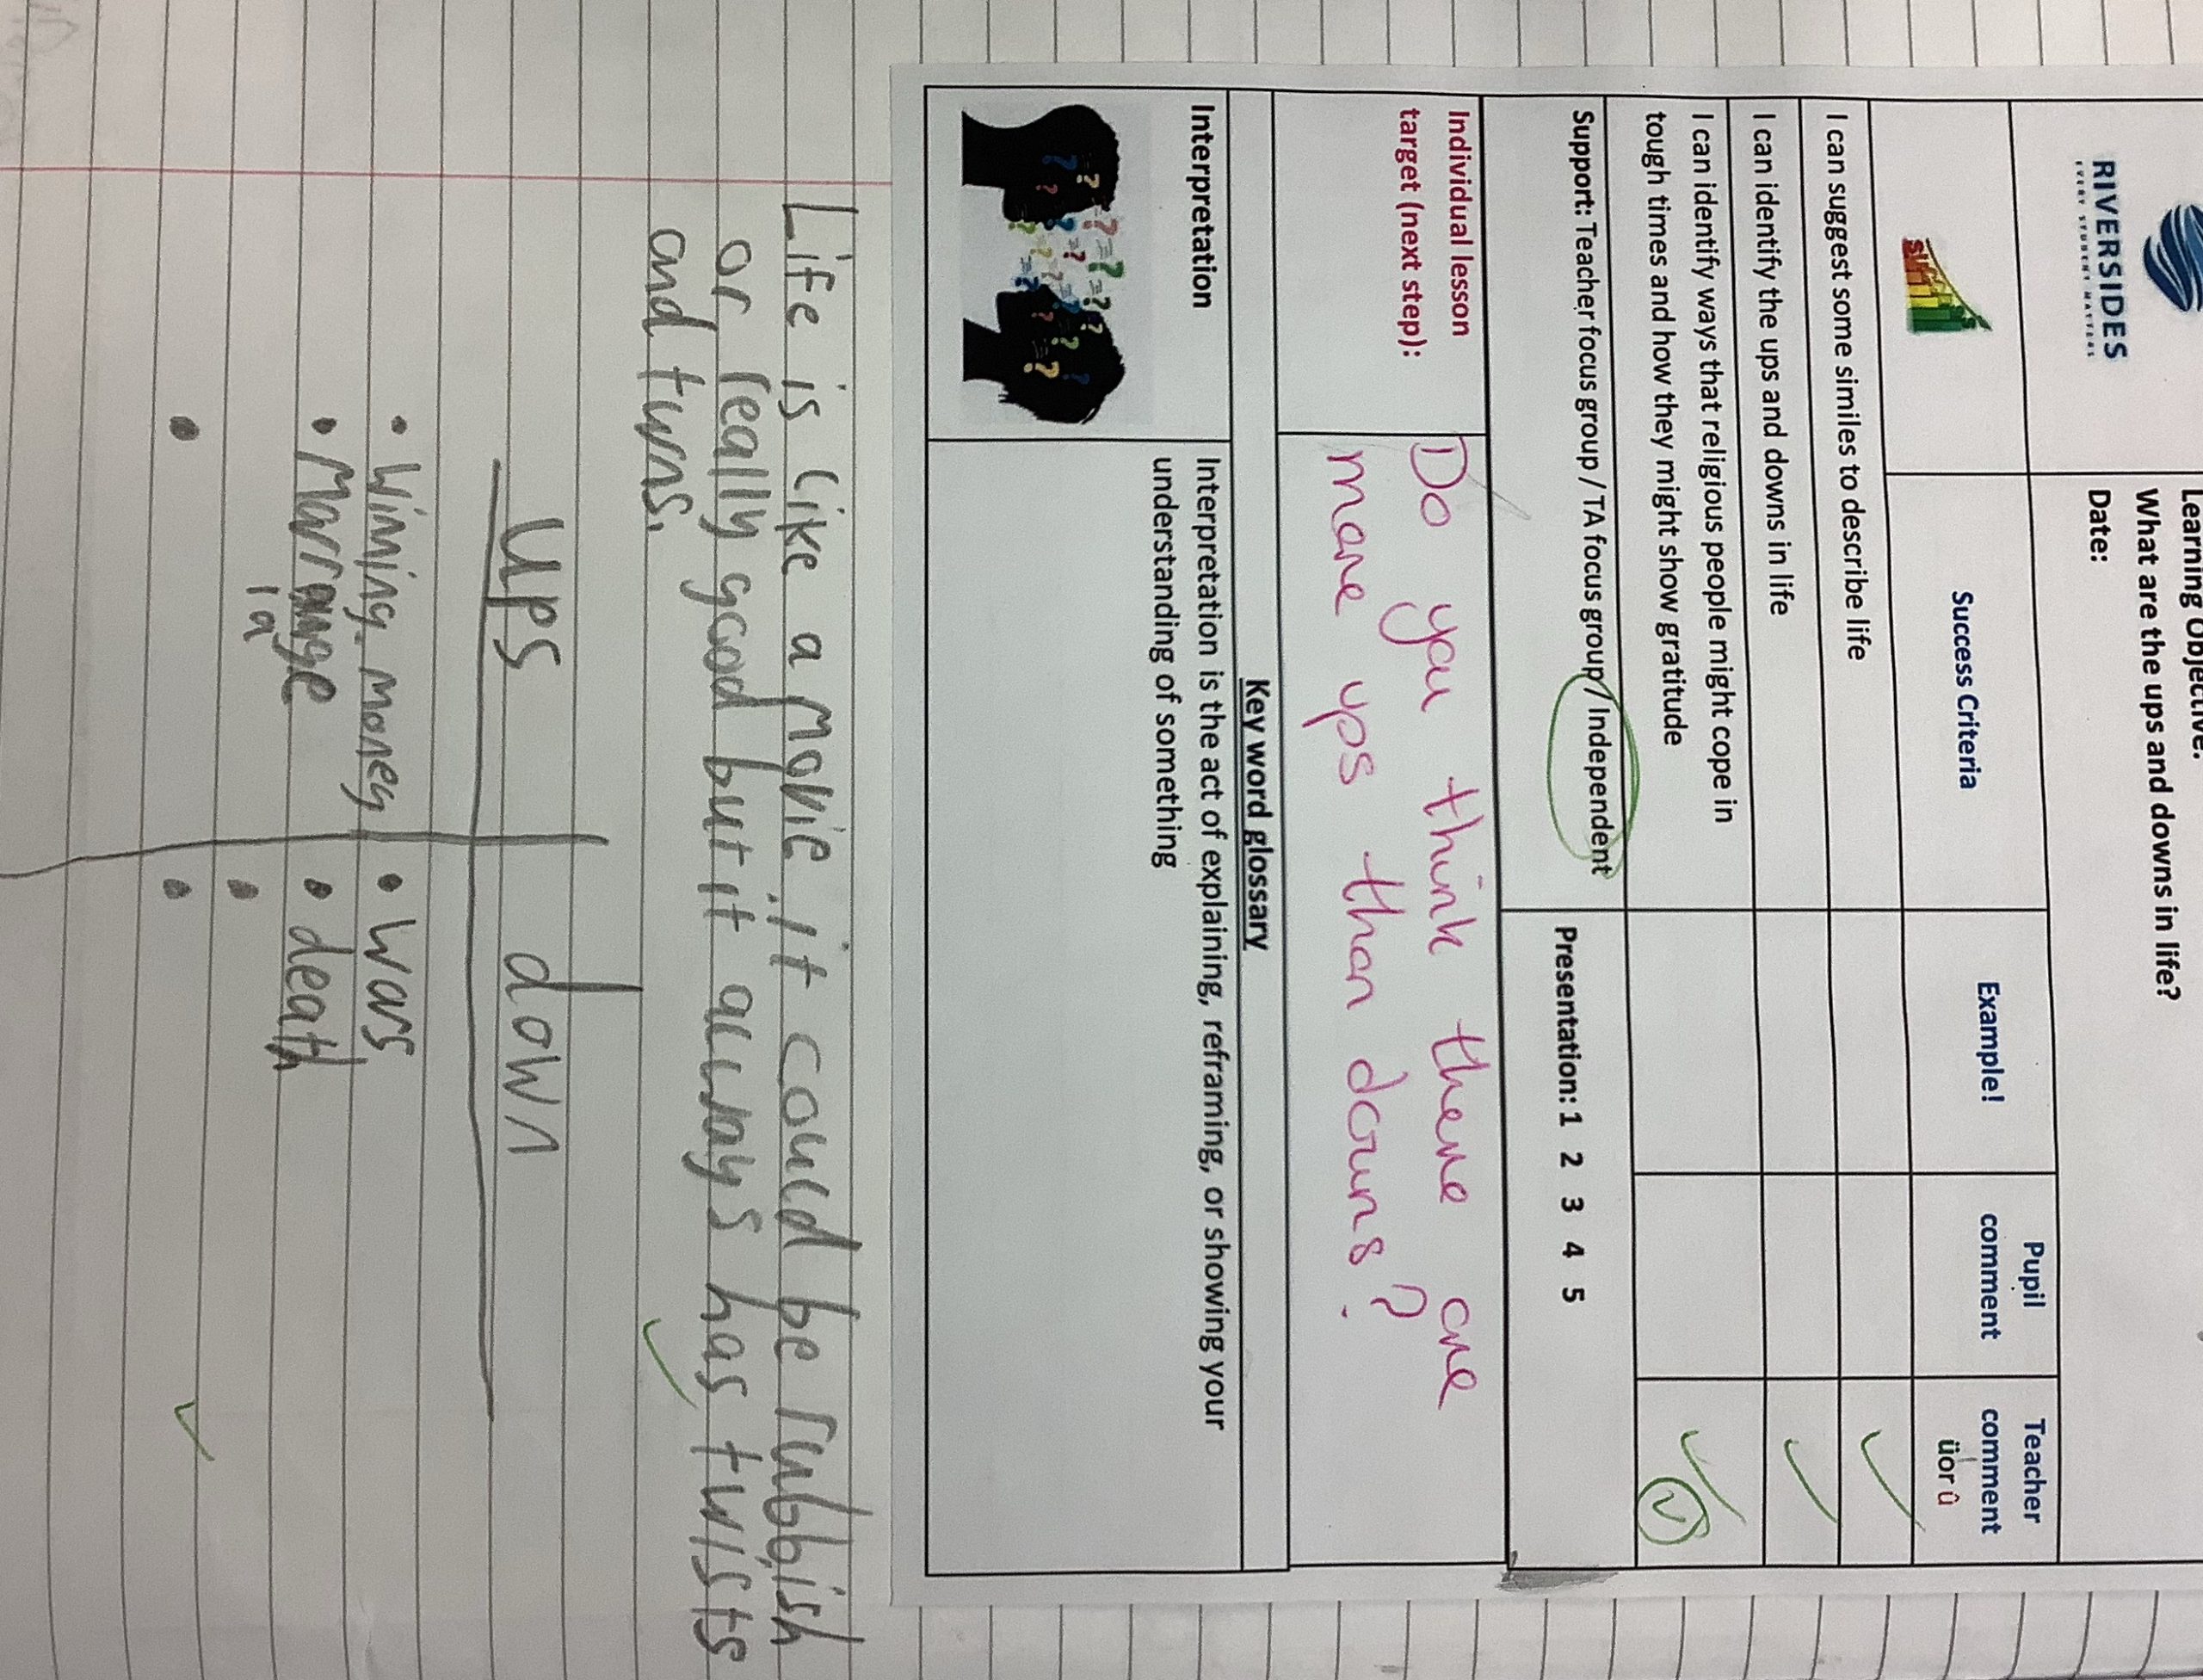 RIVERSIDES
EVERY STUDENT MATTERS
Learning Objective:
What are the ups and downs in life?
Date:
Success Criteria
Example!
Pupil comment
Teacher comment
üor û
I can suggest some similes to describe life
I can identify the ups and downs in life
I can identify ways that religious people might cope in
tough times and how they might show gratitude
Support: Teacher focus group / TA focus group / Independent
Presentation: 1 2 3 4 5
Individual lesson
target (next step):
Do you think there are
more ups than downs?
Key word glossary
Interpretation
Interpretation is the act of explaining, reframing, or showing your
understanding of something
Life is like a movie it could be rubbish
or really good but it always has twists
and turns.
ups
down
• Wining money
• Wars
• Marrange
• death
ia